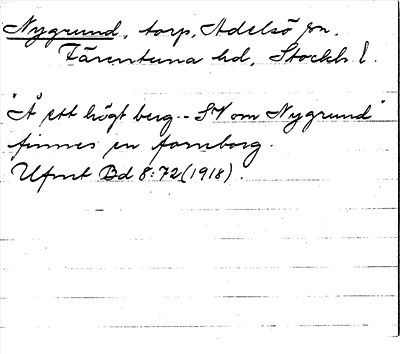 Nygrund, torp, Adelsö sn.
Färentuna hd, Stockh. l.
"Å ett högt berg -- SV om Nygrund"
finnes en fornborg.
Ufmt Bd 8:72 (1918).